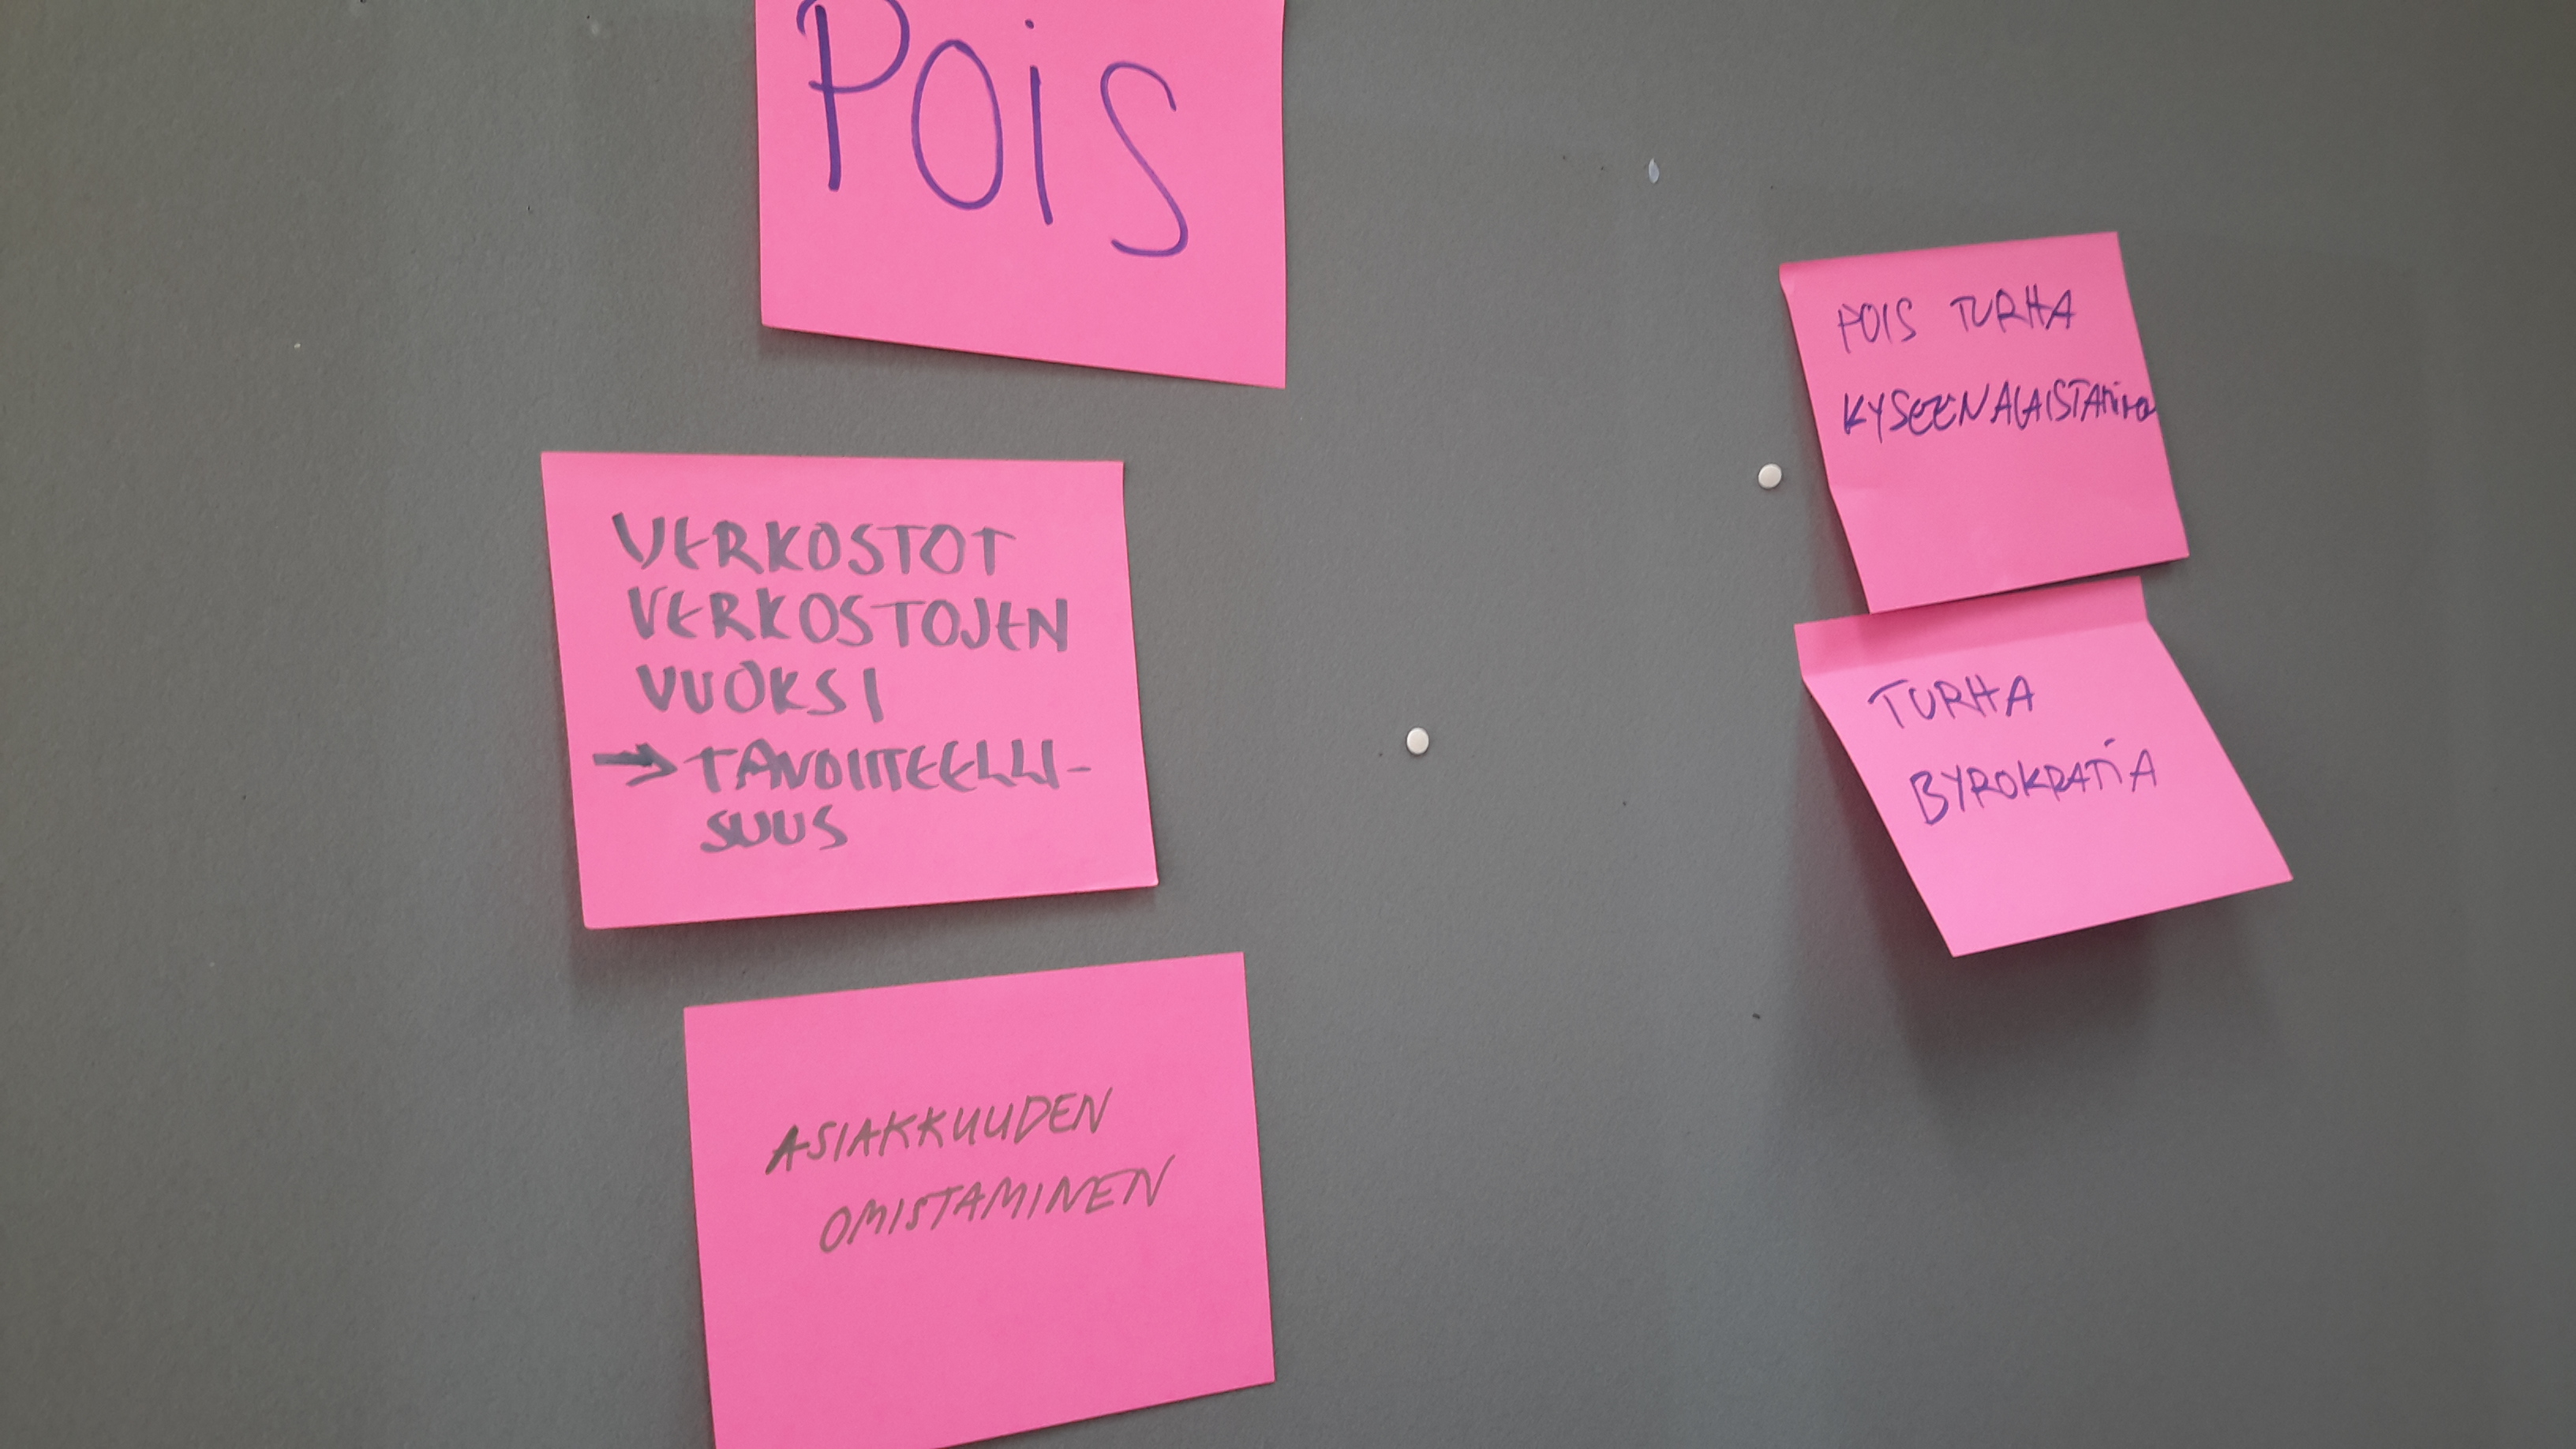 POIS
VERKOSTOT
VERKOSTOJEN
VUOKSI
→ TAVOITTEELLI-
SUUS
ASIAKKUUDEN
OMISTAMINEN
POIS TURHA
TURHA
BYROKRATIA